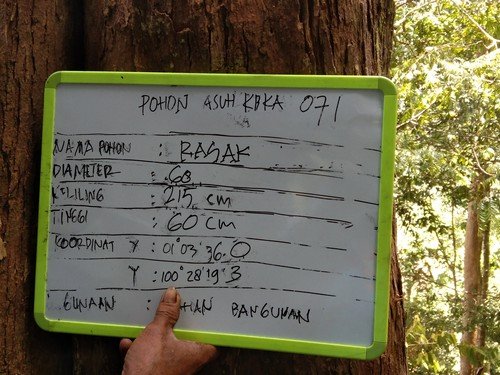 POHON ASUH KBKA 071
NAMA POHON : RASAK
DIAMETER : 68
KELILING : 215 cm
TINGGI : 60 cm
COORDINAT X : 01° 03' 36.0
Y : 100° 28' 19" 3
GUNAAN : HAN BANGUNAN